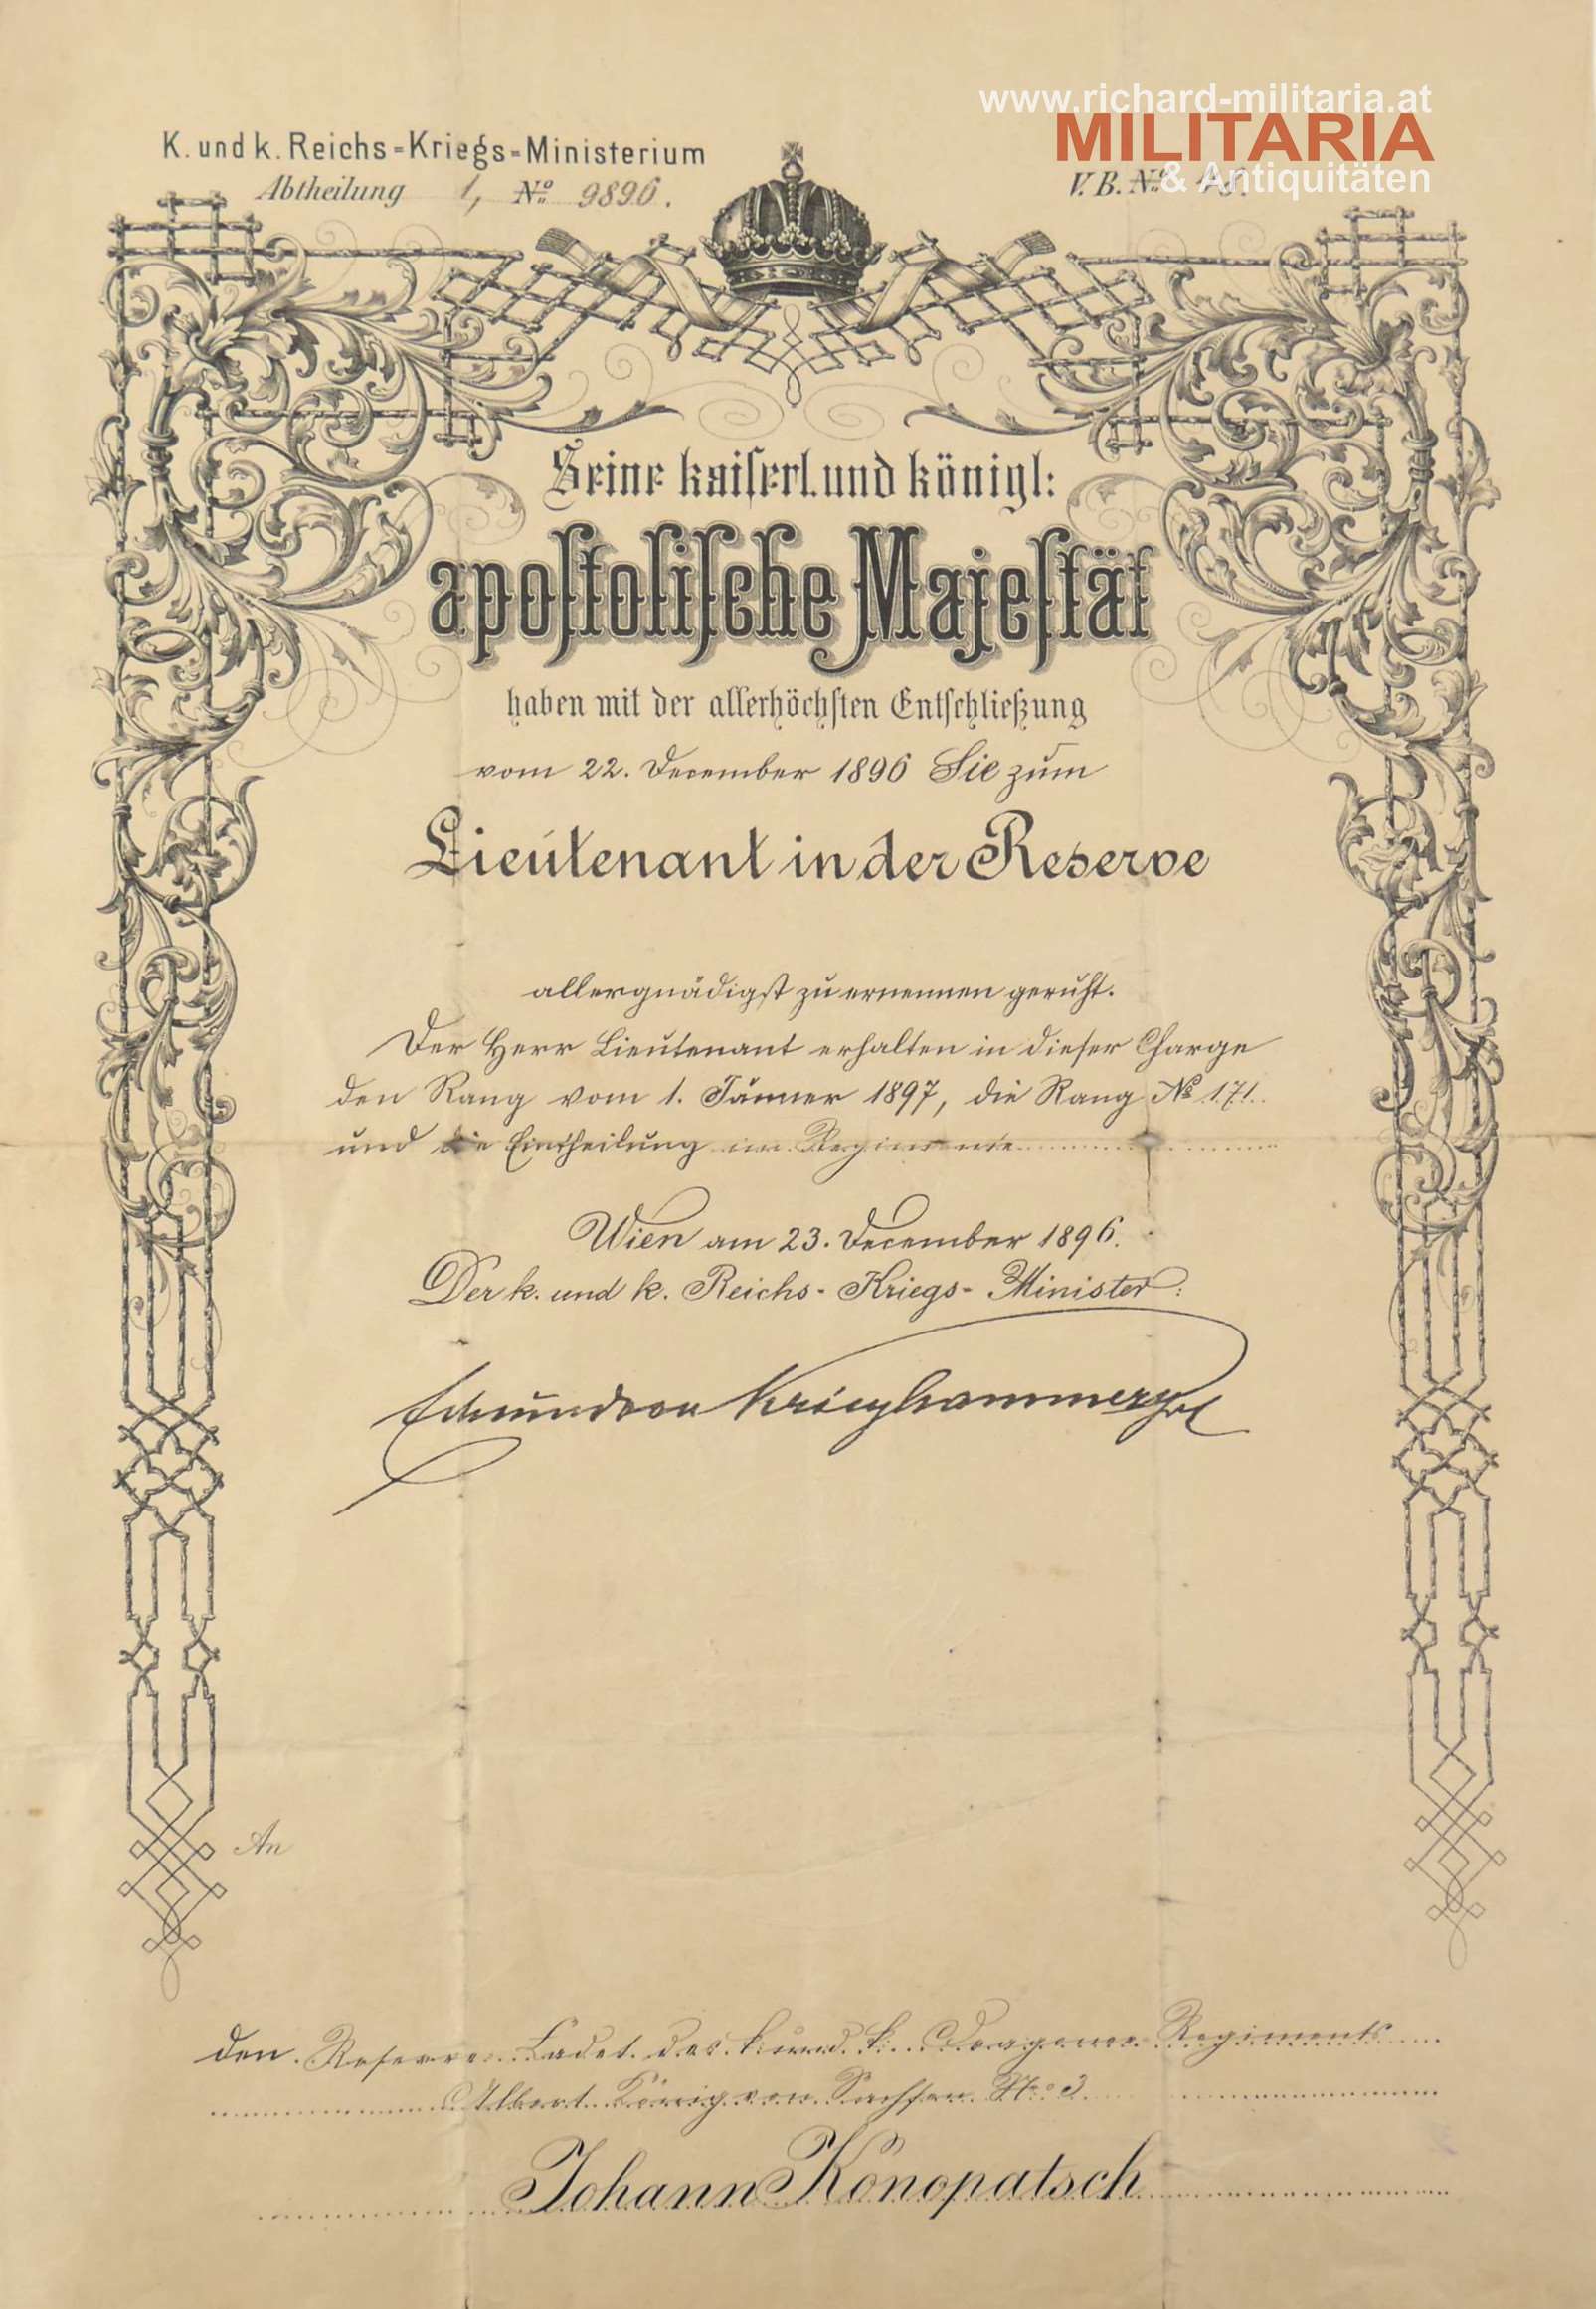 www.richard-militaria.at
MILITARIA
& Antiquitäten
K. und k. Reichs-Kriegs-Ministerium
Abtheilung 1, No 9896.
V. B. No
Seine kaiserl. und königl:
apostolische Majestät
haben mit der allerhöchsten Entschließung
vom 22. December 1896 Sie zum
Lieutenant in der Reserve
allergnädigst zu ernennen geruht.
Der Herr Lieutenant erhalten in dieser Charge
den Rang vom 1. Jänner 1897, die Rang No 171.
und die Eintheilung im Regimente
Wien am 23. December 1896.
Der k. und k. Reichs-Kriegs-Minister:
Edmund von Krieghammer
An
den Reserve-Cadet des k. und k. Dragoner-Regiments
Albert König von Sachsen No 3
Johann Konopatsch